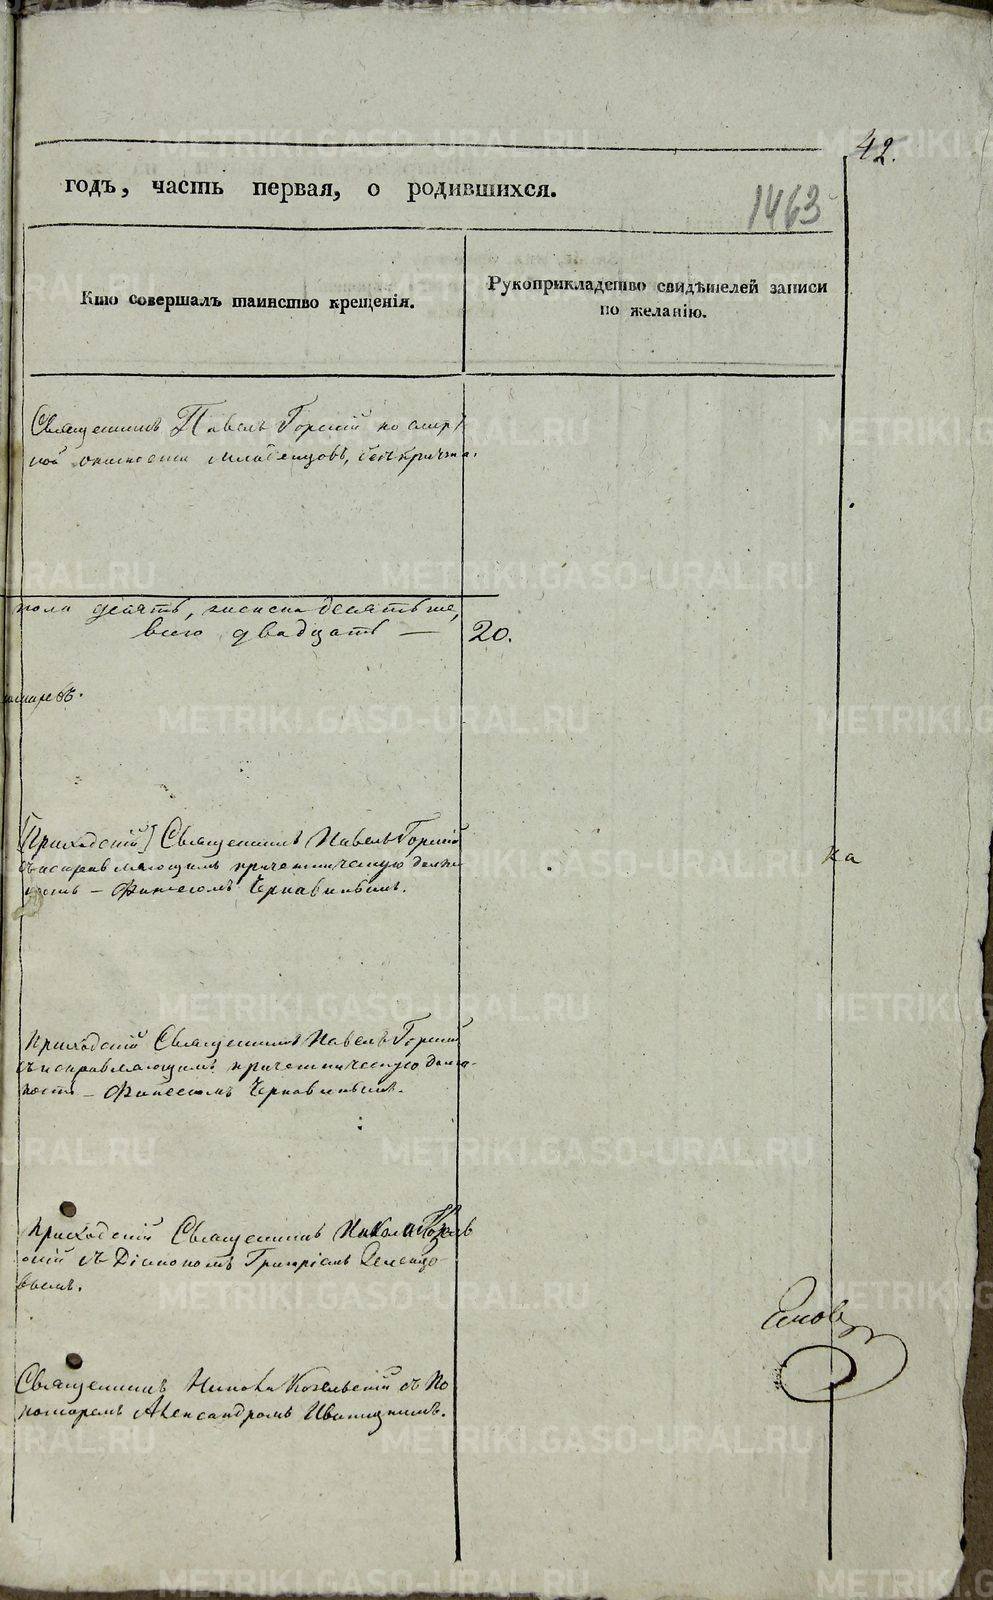 42.
годъ, часть первая, о родившихся.
1463
Кто совершалъ таинство крещенія.
Рукоприкладство свидѣтелей записи
по желанію.
Священникъ Павелъ Горскій по смерт
ной опасности младенцовъ, безъ причта.
пола десять, женска десять же,
всего двадцать — 20.
[Приходскій] Священникъ Павелъ Горскій
съ исправляющимъ причетническую долж
ность — Финеесомъ Чернавинымъ.
ка
Приходскій Священникъ Павелъ Горскій
съ исправляющимъ причетническую долж-
ность — Финеесомъ Чернавинымъ.
Приходскій Священникъ Николай Козель
скій съ Діакономъ Григоріемъ
вымъ.
Священникъ Никола Козельскій съ По
номаремъ Александромъ Иваницкимъ.
METRIKI.GASO-URAL.RU